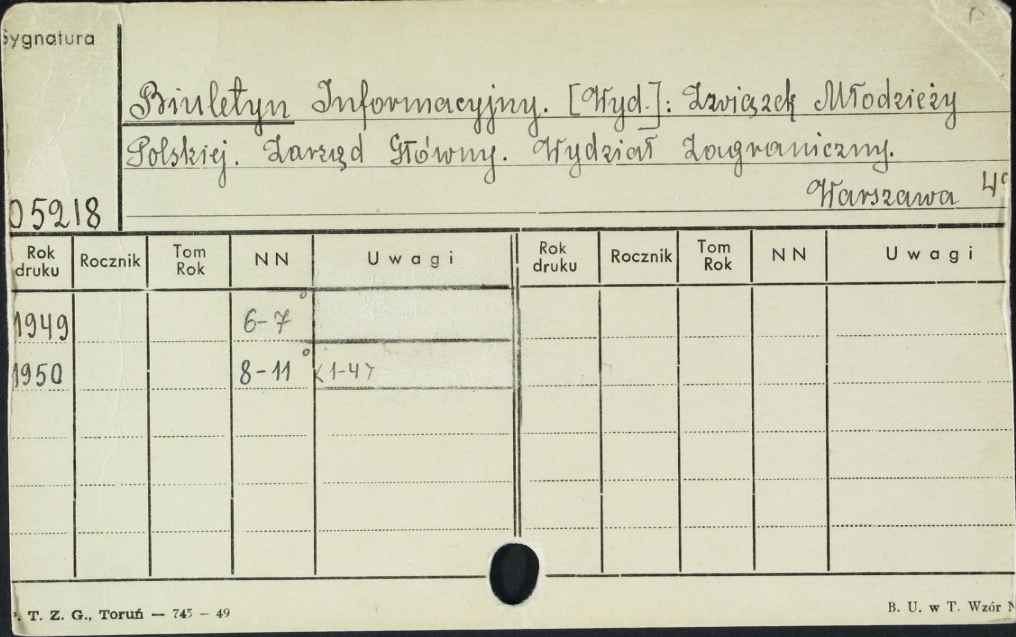 Sygnatura
Biuletyn Informacyjny. [Wyd.]: Związek Młodzieży
Polskiej. Zarząd Główny. Wydział Zagraniczny.
Warszawa 4°
05218
Rok druku Rocznik Tom Rok NN Uwagi Rok druku Rocznik Tom Rok NN Uwagi
1949 6-7°
1950 8-11° <1-4>
T. Z. G., Toruń — 745 — 49 B. U. w T. Wzór